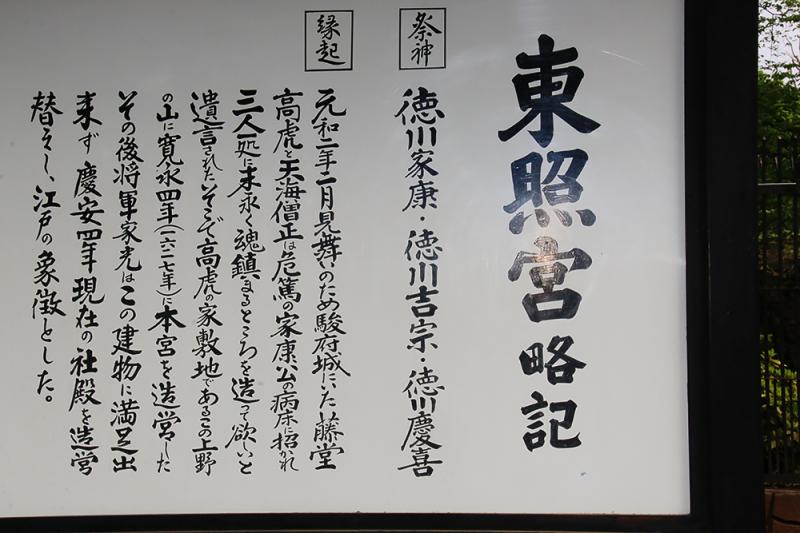 東照宮略記
祭神
徳川家康・徳川吉宗・徳川慶喜
縁起
元和二年二月見舞いのため駿府城にいた藤堂
高虎と天海僧正は危篤の家康公の病床に招かれ
三人一処に末永く魂鎮まるところを造って欲しいと
遺言されたそこで高虎の家敷地であるこの上野
の山に寛永四年(一六二七年)に本宮を造営した
その後将軍家光はこの建物に満足出
来ず慶安四年現在の社殿を造営
替えし、江戸の象徴とした。